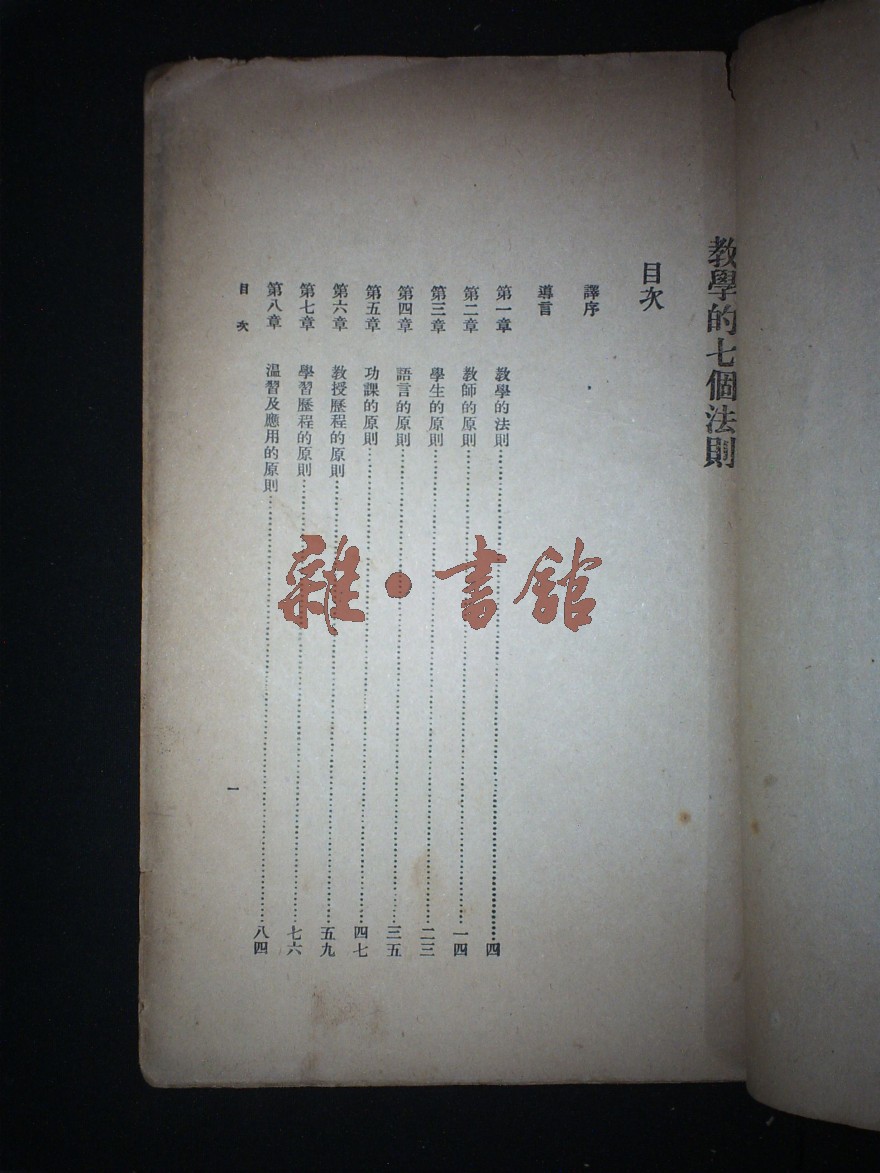 教學的七個法則
目次
譯序
導言
第一章 教學的法則…………四
第二章 教師的原則…………一四
第三章 學生的原則…………二三
第四章 語言的原則…………三五
第五章 功課的原則…………四七
第六章 教授歷程的原則…………五九
第七章 學習歷程的原則…………七六
第八章 温習及應用的原則…………八四
目次
一
雜·書館